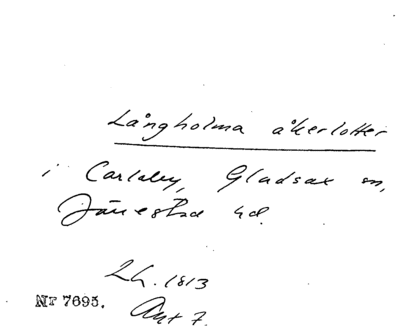 Långholma åkerlotter
i Carlaby, Gladsax sn,
Järrestad hd.
Lh. 1813
Nr 7695.
Akt 7.